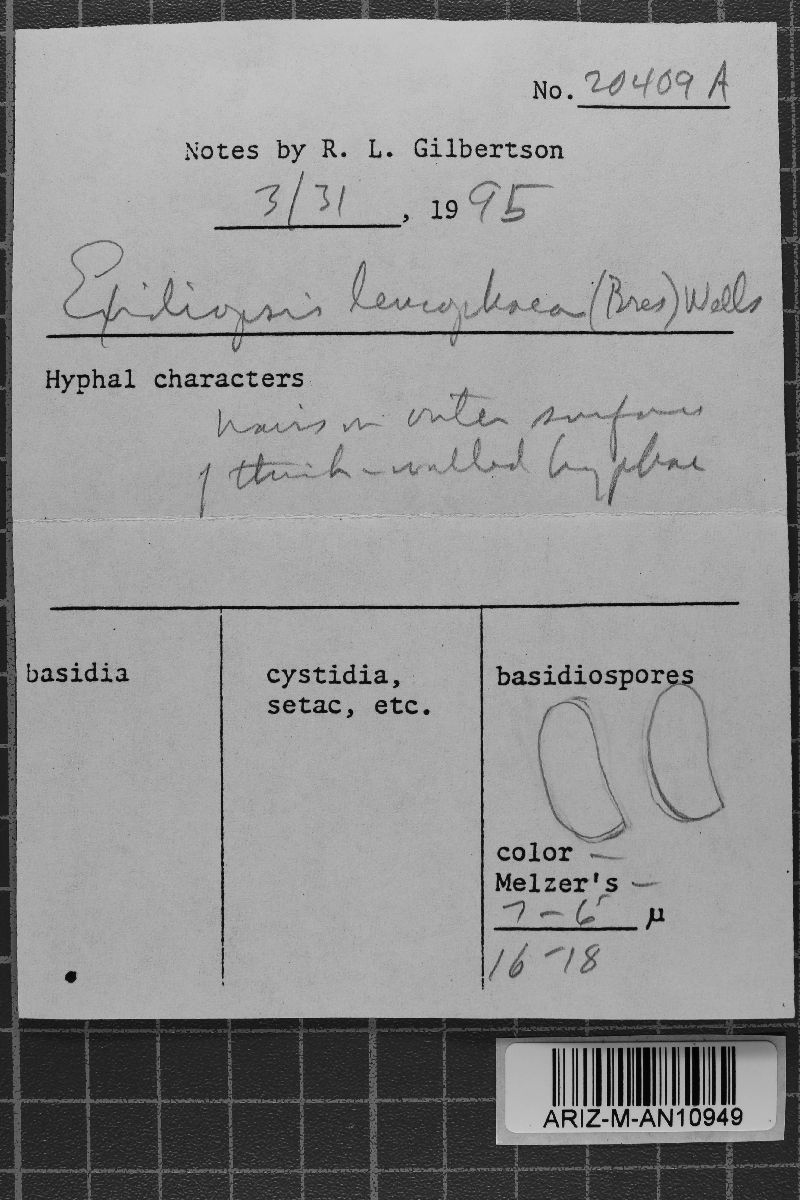 No. 20409 A
Notes by R. L. Gilbertson
3/31, 1995
Exidiopsis leucophaea (Bres) Wells
Hyphal characters
hairs on outer surfaces
of thick-walled hyphae
basidia
cystidia,
setac, etc.
basidiospores
color —
Melzer's —
7 – 6 µ
16 – 18
ARIZ-M-AN10949